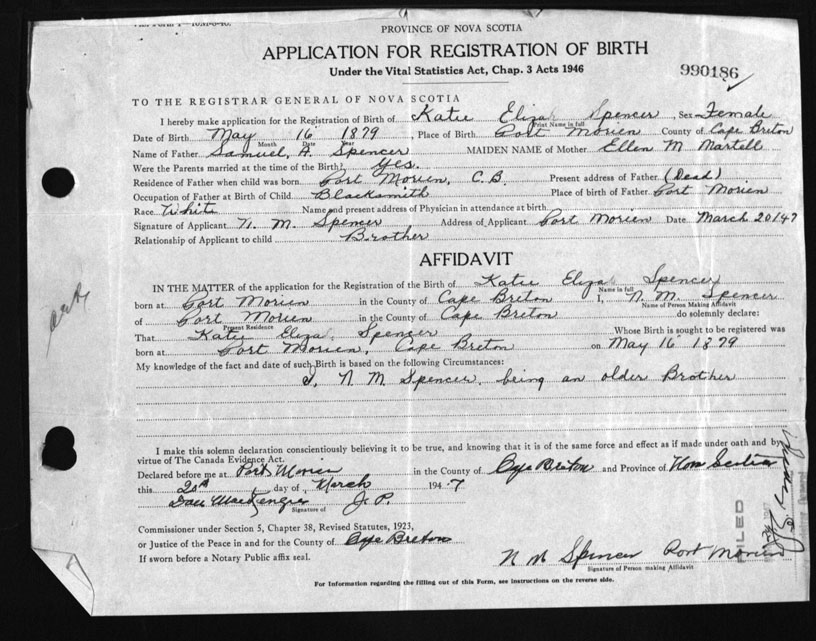 PROVINCE OF NOVA SCOTIA
APPLICATION FOR REGISTRATION OF BIRTH
Under the Vital Statistics Act, Chap. 3 Acts 1946
990186
TO THE REGISTRAR GENERAL OF NOVA SCOTIA
I hereby make application for the Registration of Birth of Katie Eliza Spencer, Sex Female
Print Name in full
Date of Birth May 16 1879, Place of Birth Port Morien County of Cape Breton
Month Date Year
Name of Father Samuel, A. Spencer MAIDEN NAME of Mother Ellen M Martell
Were the Parents married at the time of the Birth? Yes.
Residence of Father when child was born Port Morien, C.B. Present address of Father (Dead)
Occupation of Father at Birth of Child Blacksmith Place of birth of Father Port Morien
Race White Name and present address of Physician in attendance at birth
Signature of Applicant N. M. Spencer Address of Applicant Port Morien Date March 20 147
Relationship of Applicant to child Brother
AFFIDAVIT
IN THE MATTER of the application for the Registration of the Birth of Katie Eliza Spencer
Name in full
born at Port Morien in the County of Cape Breton I, N. M. Spencer
Name of Person Making Affidavit
of Port Morien in the County of Cape Breton do solemnly declare:
Present Residence
That Katie Eliza Spencer Whose Birth is sought to be registered was
born at Port Morien, Cape Breton on May 16 1879
My knowledge of the fact and date of such Birth is based on the following Circumstances:
I, N M Spencer, being an older Brother
I make this solemn declaration conscientiously believing it to be true, and knowing that it is of the same force and effect as if made under oath and by
virtue of The Canada Evidence Act.
Declared before me at Port Morien in the County of Cape Breton and Province of Nova Scotia
this 20th day of March 1947
Dan MacKenzie J. P.
Signature of
Commissioner under Section 5, Chapter 38, Revised Statutes, 1923,
or Justice of the Peace in and for the County of Cape Breton
If sworn before a Notary Public affix seal.
N M Spencer Port Morien
Signature of Person making Affidavit
For Information regarding the filling out of this Form, see instructions on the reverse side.
FILED